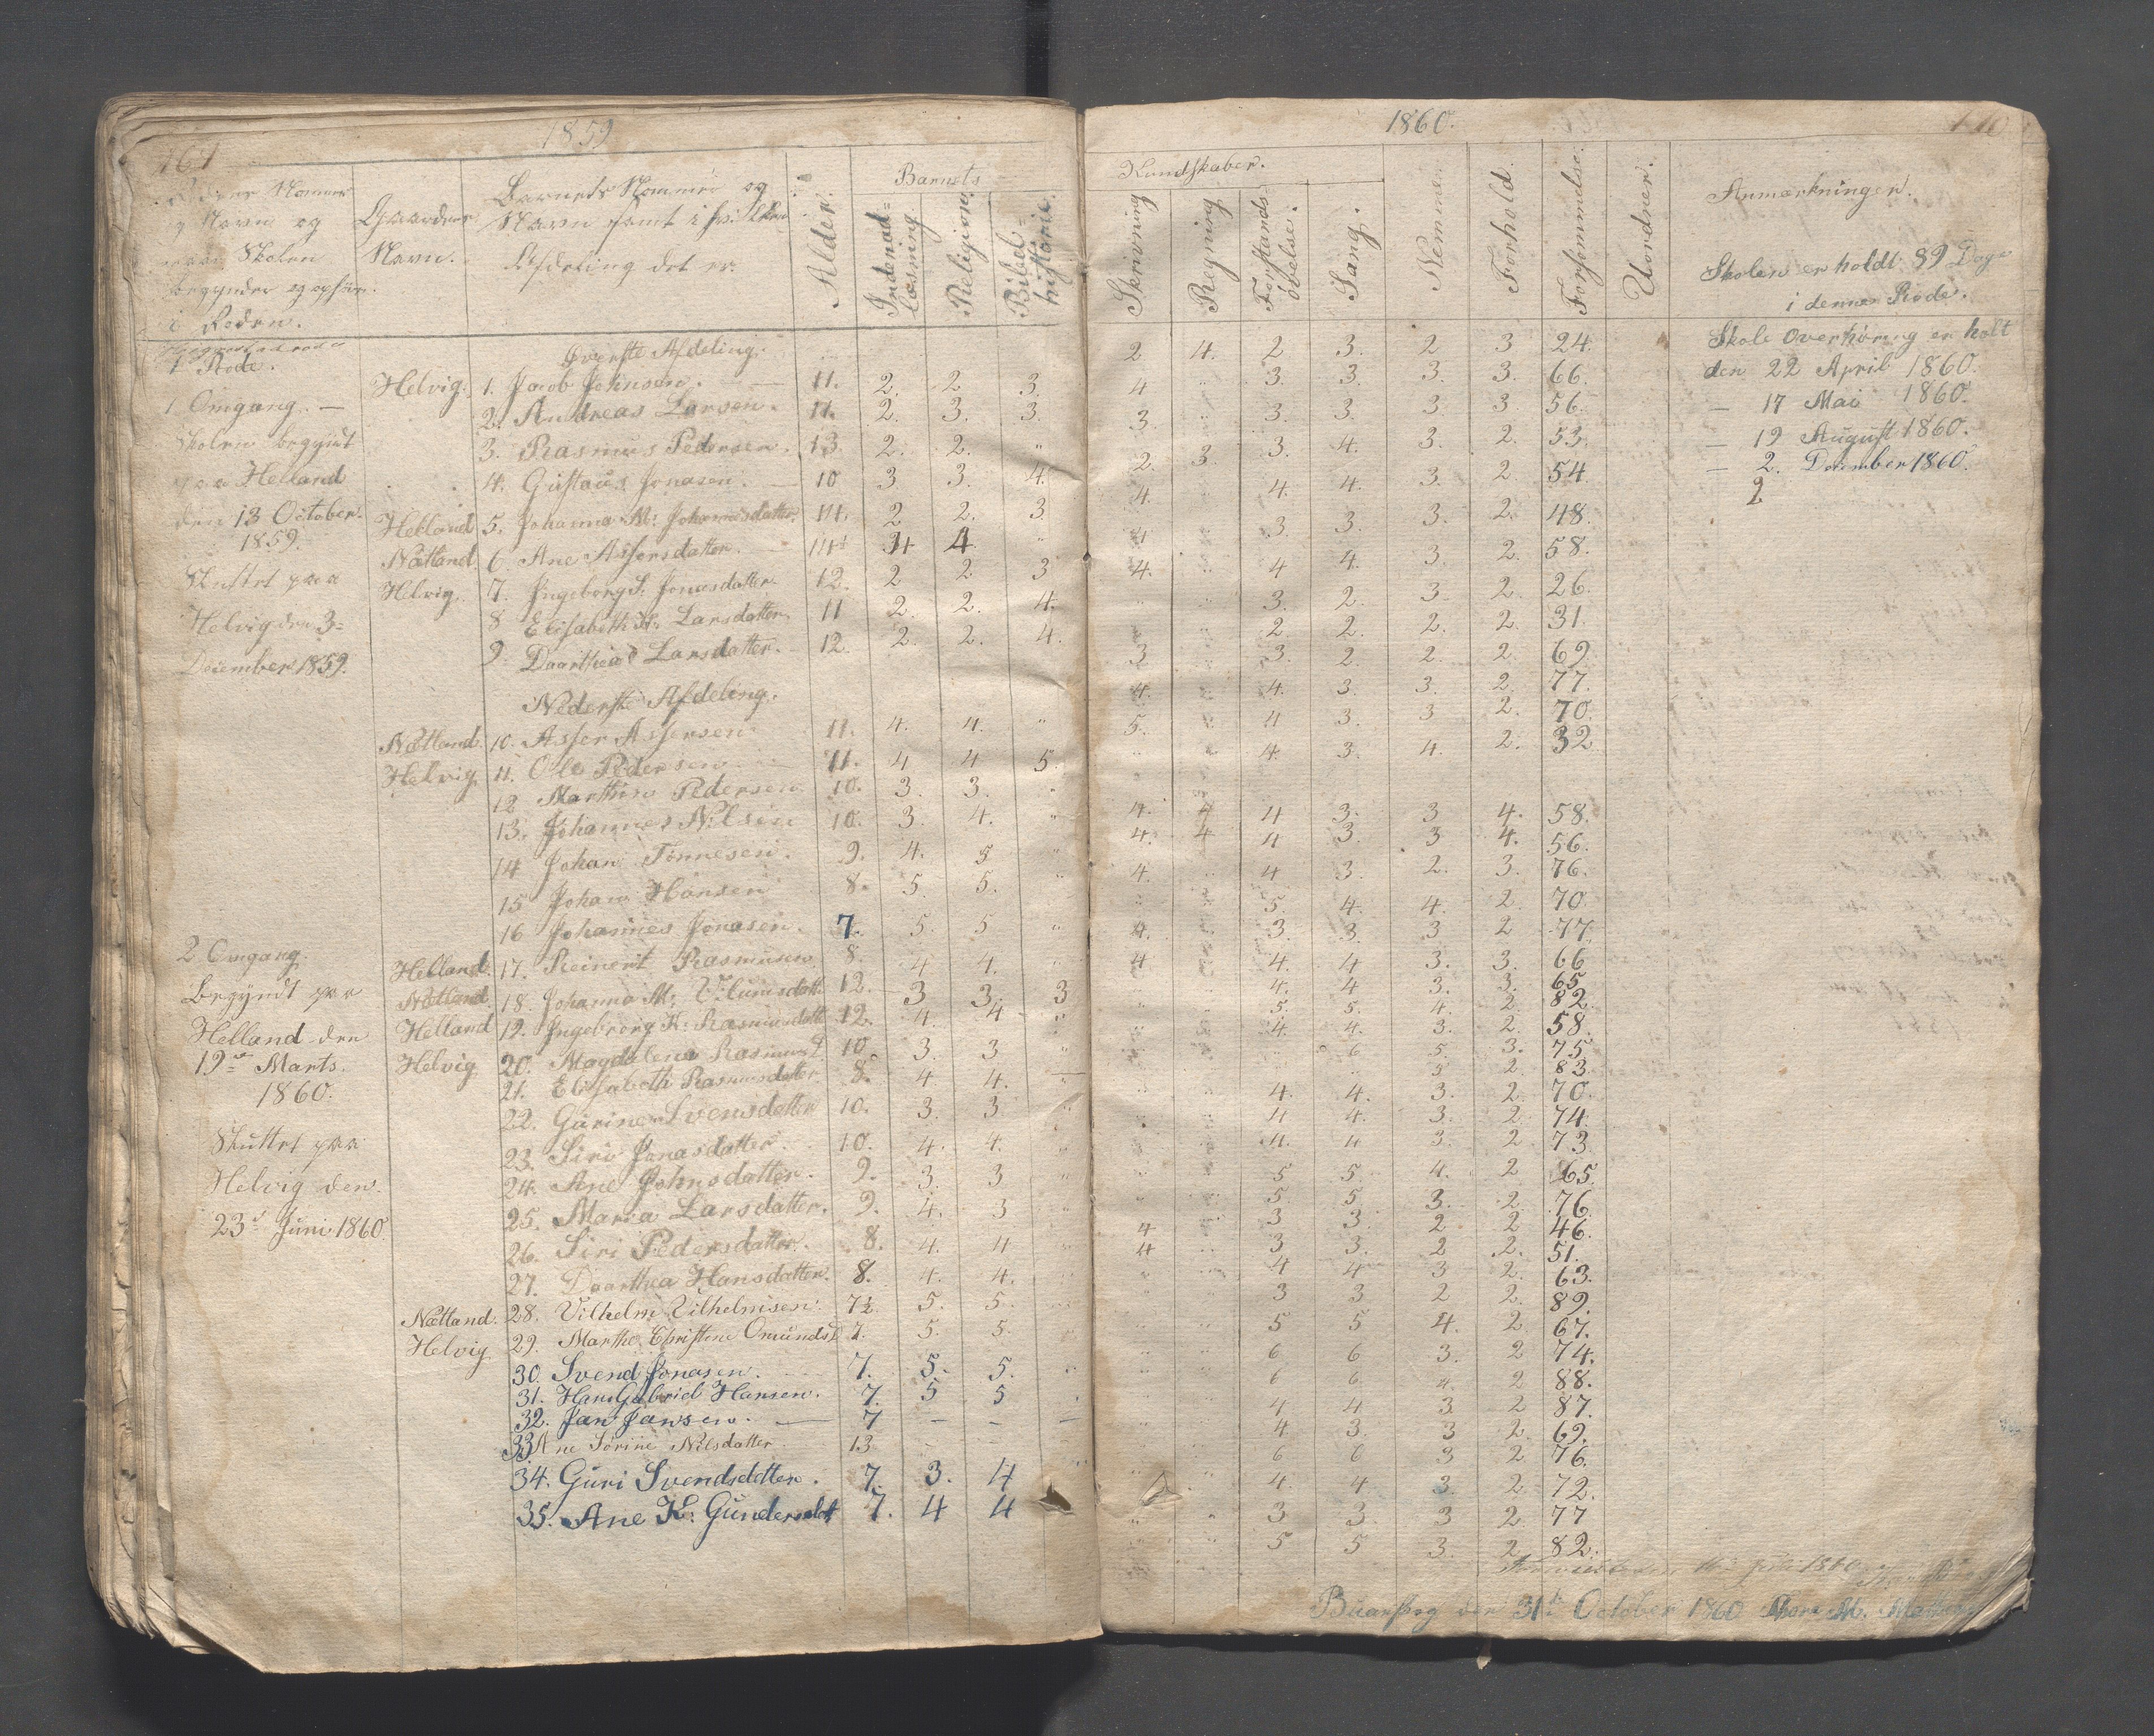 1859
Gaardens
Navn.
Barnets Nommer og
Navn samt i hvilken
Afdeling det er.
Alder.
Barnets
Indenad=
læsning
Religion.
Bibel=
historie.
1 Rode.
Øverste Afdeling.
Helvig. 1. Jacob Johnsen. 11. 2. 2 3.
1 Omgang. — 2. Andreas Larsen. 11. 2. 3. 3.
Skolen begyndt 3. Rasmus Pedersen. 13. 2. 2. "
paa Helland 4. Gustaus Jonasen. 10 3 3. 4.
den 13 October. Helland 5. Johanna M: Johannesdatter. 11. 2 2. 3
1859. Nætland. 6. Ane Assersdatter. 4
Sluttet paa Helvig. 7. Ingeborg S. Jonasdatter. 12. 2 2 3
Helvig den 3= 8 Elisabeth K: Larsdatter. 11 2. 2. 4.
December 1859. 9. Daarthea Larsdatter. 12. 2. 2. 4.
Nederste Afdeling.
Nætland. 10. Asser Assersen. 11. 4. 4. "
Helvig. 11. Ole Pedersen 11. 4 4 5.
12 Marthin Pedersen 10. 3. 3. "
13. Johannes Nilsen 10. 3. 4. "
14 Johan Tønnesen. 9. 4. 5 "
15 Johan Hansen 8. 5. 5. "
16 Johannes Jonasen. 7. 5. 5 "
2 Omgang. Helland. 17. Reinert Rasmusen 8. 4 4. "
Begyndt paa Nætland. 18. Johanna M: 12. 3 3. 3
Helland den Helland 19. Ingeborg K: Rasmusdatt 12. 4. 4 "
19de Marts. Helvig. 20. Magdalena Rasmusd. 10 3. 3 "
1860. 21. Elisabeth Rasmusdatter. 8. 4 4. —
22. Gurine Svensdatter 10. 3. 3 "
Sluttet paa 23. Siri Jonasdatter. 10. 4. 4. "
Helvig den. 24. Ane Johnsdatter. 9. 3. 3 "
23d Juni 1860 25. Maria Larsdatter. 9. 4. 3 "
26. Siri Pedersdatter. 8. 4. 4 "
27. Daarthea Hansdatter. 8. 4. 4.
Nætland. 28. Vilhelm Vilhelmsen. 7½ 5. 5.
Helvig 29. Marthe Christine Omundsd 7. 5. 5.
30. Svend Jonasen. 7. 5. 5. "
31. Hans Gabriel Hansen. 7. 5 5
32. Jan Jansen. — 7 — — —
33 Ane Sørine Nilsdatter 13
34. Guri Svendsdatter. 7. 3. 4
35. Ane K: Gundersdatt 7. 4 4
1860.
Kundskaber.
Skrivning
Regning
Forstands=
øvelse.
Sang.
Nemme.
Forhold.
Forsømmelse.
Uordner.
Anmærkninger.
Skolen er holdt 89 Dage
i denne Rode.
2 4. 2 3. 2 3 24. Skole Overhøring er holt
4 " 3. 3. 3. 3. 66. den 22 April 1860.
3. " 3. 3. 3. 3 56. — 17 Mai 1860.
2. 3. 3. 4. 3. 2. 53. — 19 August 1860.
4. " 4. 4. 3. 2 54. — 2. December 1860.
2
4 " 3. 3. 3. 2. 48.
4. " 4 4. 3. 2. 58.
" " 3. 2. 3 2. 26.
" " 2. 2. 2. 2. 31.
3 " 3. 2. 2. 2. 69.
4. " 4. 3. 3. 2. 77.
5. " 4 3. 3 2. 70.
" " 4. 3. 4. 2. 32
4. 4 4 3. 3 4. 58.
4. 4 4 3 3 4. 56.
4. " 4 3. 2. 3. 76.
" " 5 4. 4. 2. 70.
4. " 3. 3. 3 2 77.
4 " 4. 4 3. 3. 66
" " 4. 4 3. 3. 65.
" " 5. 5. 4. 2 82.
" " 4 4. 3. 2. 58.
6 5. 3. 75
2. 83.
" " 4. 4. 3. 2. 70.
" " 4 4. 3. 2 74.
" " 4. 4 3. 2. 73
" " 5 5. 4. 2 65.
" " 5. 5 3. 2. 76.
4 " 3 3. 2 2 46.
4 " 3 3. 2 2. 51.
" " 4 4 3 2. 63.
" " 3 3 2 2. 89.
" " 5 5 4. 2 67.
" " 6 6 3. 2 74.
" " 6 6 4. 2 88.
" " 4 4 3 2 87.
" " 4 3. 3 2. 69.
" " 6 6 3 2. 76.
" " 4. 4 3. 2 72.
" " 3 3. 3 2 77
" " 5 5 3. 2 82.
Juli 1860
den 31te October 1860